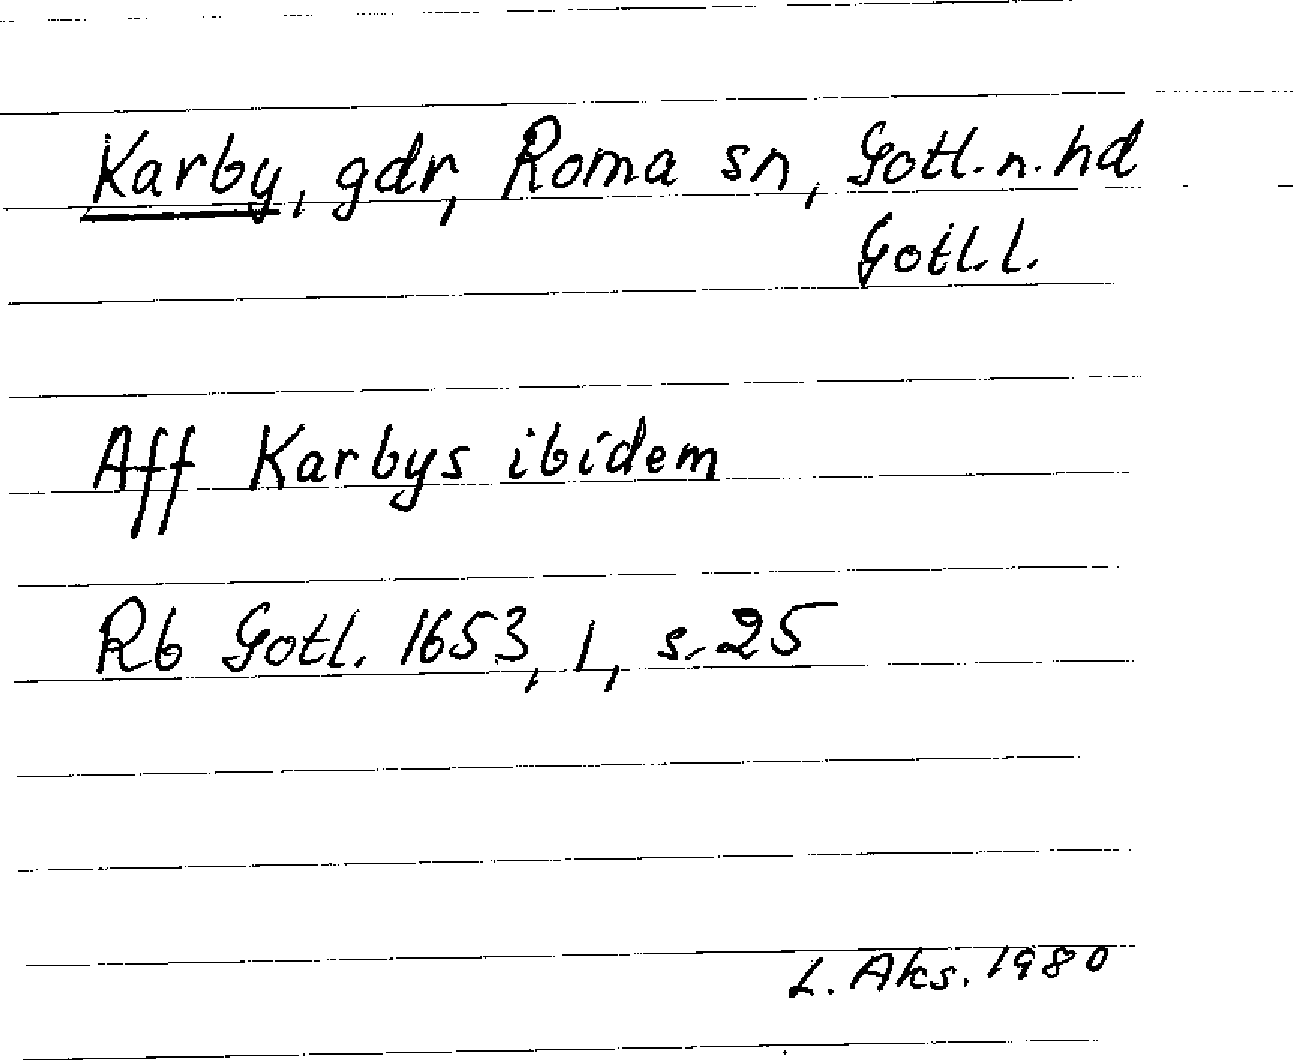 Karby, gdr, Roma sn, Gotl. n. hd
Gotl. l.
Aff Karbys ibidem
Rb Gotl. 1653, 1, s. 25
L. Aks. 1980